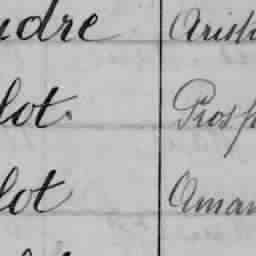 udre Arist
lot. Prosp
lot Aman